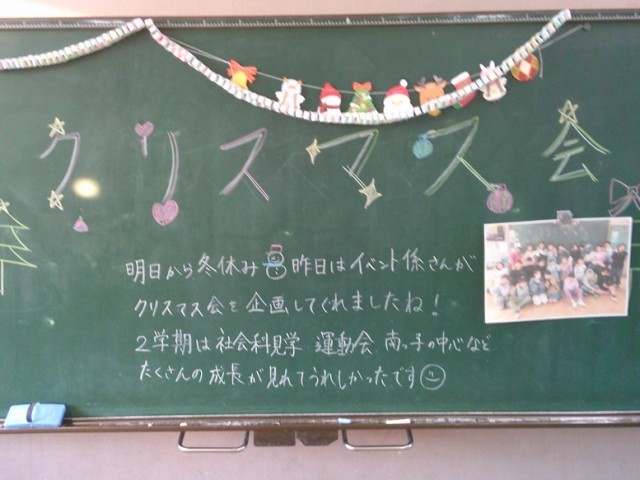 クリスマス会
明日から冬休み 昨日はイベント係さんが
クリスマス会を企画してくれましたね!
2学期は社会科見学 運動会 南っ子の中心など
たくさんの成長が見れてうれしかったです